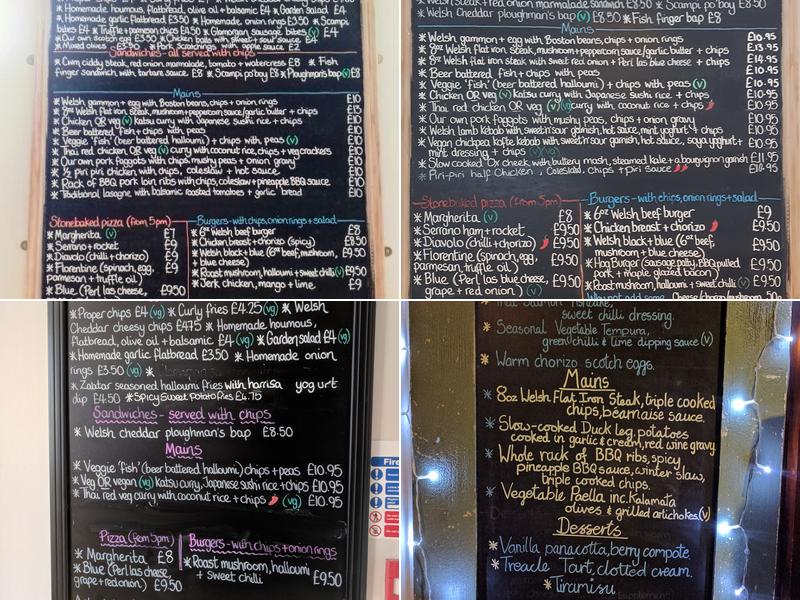 * Homemade houmous, flatbread, olive oil + balsamic £4 * Garden salad £4
* Homemade garlic flatbread £3.50 * Homemade onion rings £3.50 * Scampi
bites £4 * Truffle + parmesan chips £4.50 * Glamorgan sausage bites (v) £4
* Our own scotch egg £3 * Chicken balls with sweet + sour sauce £4
* Mixed olives £3.50 * Pork Scratchings with sauce £2
Sandwiches - all served with chips
* Cwm ciddy steak, red onion marmalade, tomato + watercress £8 * Fish
finger sandwich, with tartare sauce £8 * Scampi po'boy £8 * Ploughman's bap (v) £8
Mains
* Welsh gammon + egg with Boston beans, chips + onion rings £10
* 8oz Welsh flat iron steak, mushroom + peppercorn sauce/garlic butter + chips £13
* Chicken OR veg (v) katsu curry with Japanese sushi rice + chips £10
* Beer battered fish + chips with peas £10
* Veggie 'fish' (beer battered halloumi) + chips with peas (v) £10
* Thai red chicken OR veg (v) curry with coconut rice, chips + veg crackers £10
* Our own pork faggots with chips, mushy peas + onion gravy £10
* ½ piri piri chicken with chips, coleslaw + hot sauce £10
* Rack of BBQ pork loin ribs with chips, coleslaw + pineapple BBQ sauce £10
* Traditional lasagne with balsamic roasted tomatoes + garlic bread £10
Stonebaked pizza (from 5pm)
* Margherita (v) £7
* Serrano + rocket £9
* Diavolo (chilli + chorizo) £9
* Florentine (spinach, egg,
parmesan + truffle oil) £9
* Blue (Perl las cheese, £9.50
Burgers - with chips, onion rings + salad
* 6oz Welsh beef burger £8
* Chicken breast + chorizo (spicy) £8.50
* Welsh black + blue (6oz beef, mushroom,
+ blue cheese) £9.50
* Roast mushroom, halloumi + sweet chilli (v) £9.50
* Jerk chicken, mango + lime £9
* Welsh steak + red onion marmalade sandwich £8.50 * Scampi po'boy £8.50
* Welsh Cheddar ploughman's bap (v) £8.50 * Fish finger bap £8
Mains
* Welsh gammon + egg with Boston beans, chips + onion rings £10.95
* 8oz Welsh flat iron steak, mushroom + peppercorn sauce/garlic butter + chips £13.95
* 8oz Welsh flat iron steak with sweet red onion + Perl las blue cheese + chips £14.95
* Beer battered fish + chips with peas £10.95
* Veggie 'fish' (beer battered halloumi) + chips with peas (v) £10.95
* Chicken OR veg (v) katsu curry with Japanese sushi rice + chips £10.95
* Thai red chicken OR veg (v)(vg) curry with coconut rice + chips £10.95
* Our own pork faggots with mushy peas, chips + onion gravy £10.95
* Welsh lamb kebab with sweet 'n' sour garnish, hot sauce, mint yoghurt + chips £10.95
* Vegan chickpea kofte kebab with sweet 'n' sour garnish, hot sauce, soya yoghurt +
mint dressing + chips £10.95
* Slow cooked Ox cheek with buttery mash, steamed kale + a bourguignon garnish £11.95
* Piri-piri half Chicken, Coleslaw, Chips + Piri sauce £10.95
Stonebaked pizza (from 5pm)
* Margherita (v) £8
* Serrano ham + rocket £9.50
* Diavolo (chilli + chorizo) £9.50
* Florentine (spinach, egg,
parmesan, truffle oil) £9.50
* Blue (Perl las blue cheese,
grape + red onion) (v) £9.50
Burgers - with chips, onion rings + salad
* 6oz Welsh beef burger £9
* Chicken breast + chorizo £9.50
* Welsh black + blue (6oz beef,
mushroom + blue cheese) £9.50
* Hog Burger (sausage patty, BBQ pulled
pork + maple glazed bacon) £9.50
* Roast mushroom, halloumi + sweet chilli (v) £9.50
Why not add some Cheese/chorizo/mushroom 50p
* Proper chips £4 (vg) * Curly fries £4.25 (vg) * Welsh
Cheddar cheesy chips £4.75 * Homemade houmous,
flatbread, olive oil + balsamic £4 (vg) * Garden salad £4 (vg)
* Homemade garlic flatbread £3.50 * Homemade onion
rings £3.50 (vg) *
* Zahtar seasoned halloumi fries with harrisa yogurt
dip £4.50 * Spicy Sweet Potato Fries £4.75
Sandwiches - served with chips
* Welsh cheddar ploughman's bap £8.50
Mains
* Veggie 'fish' (beer battered halloumi) chips + peas £10.95
* Veg OR vegan (vg) katsu curry, Japanese sushi rice + chips £10.95
* Thai red veg curry with coconut rice + chips (vg) £10.95
Pizza (from 5pm)
* Margherita £8
* Blue (Perl las cheese,
grape + red onion) £9.50
Burgers - with chips + onion rings
* Roast mushroom, halloumi
+ sweet chilli £9.50
Fire
sweet chilli dressing.
* Seasonal Vegetable Tempura,
green chilli & lime dipping sauce (v)
* Warm chorizo scotch eggs.
Mains
* 8oz Welsh Flat Iron Steak, triple cooked
chips, bearnaise sauce.
* Slow-cooked Duck leg, potatoes
cooked in garlic & cream, red wine gravy.
* Whole rack of BBQ ribs, spicy
pineapple BBQ sauce, winter slaw,
triple cooked chips.
* Vegetable Paella inc. Kalamata
olives & grilled artichokes (v)
Desserts
* Vanilla panacotta, berry compote.
* Treacle Tart, clotted cream.
* Tiramisu